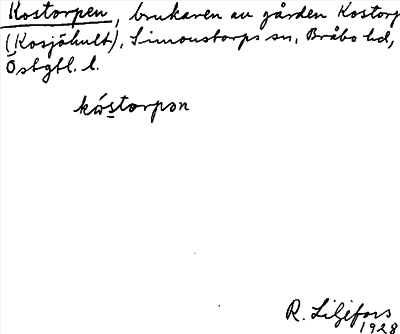 Kostorpen, brukaren av gården Kostorp
(Kosjöhult), Simonstorps sn, Bråbo hd,
Östgtl. l.
kóstorpən
R. Liljefors
1928